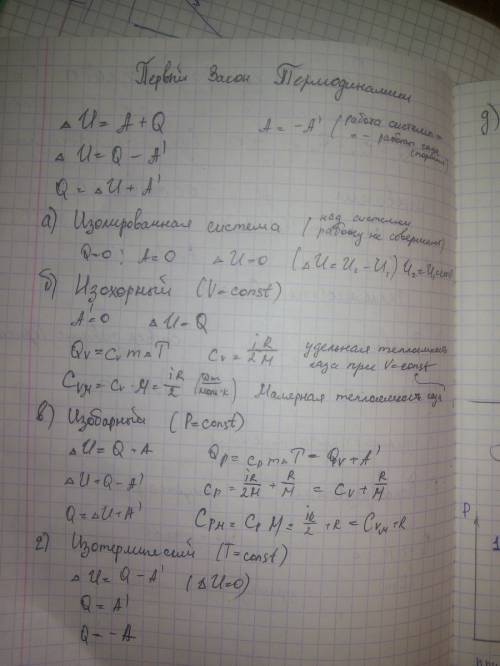 Первый Закон Термодинамики
ΔU = A + Q A = -A' (работа системы =
= - работы газа
ΔU = Q - A'
Q = ΔU + A'
а) Изолированная система (над системой
работу не совершают)
Q=0; A=0 ΔU=0 (ΔU=U₂-U₁) U₂=U₁=const
б) Изохорный (V=const)
A'=0 ΔU=Q
Qv = Cv m ΔT Cv = iR/2M удельная теплоёмкость
газа при V=const
CvM = Cv · M = iR/2 (Дж/моль·К) Молярная теплоёмкость газа
в) Изобарный (P=const)
ΔU = Q - A Qp = Cp m ΔT = Qv + A'
ΔU = Q - A' Cp = iR/2M + R/M = Cv + R/M
Q = ΔU + A' CpM = Cp M = iR/2 + R = CvM + R
г) Изотермический (T=const)
ΔU = Q - A' (ΔU=0)
Q = A'
Q = -A
д)
P
1